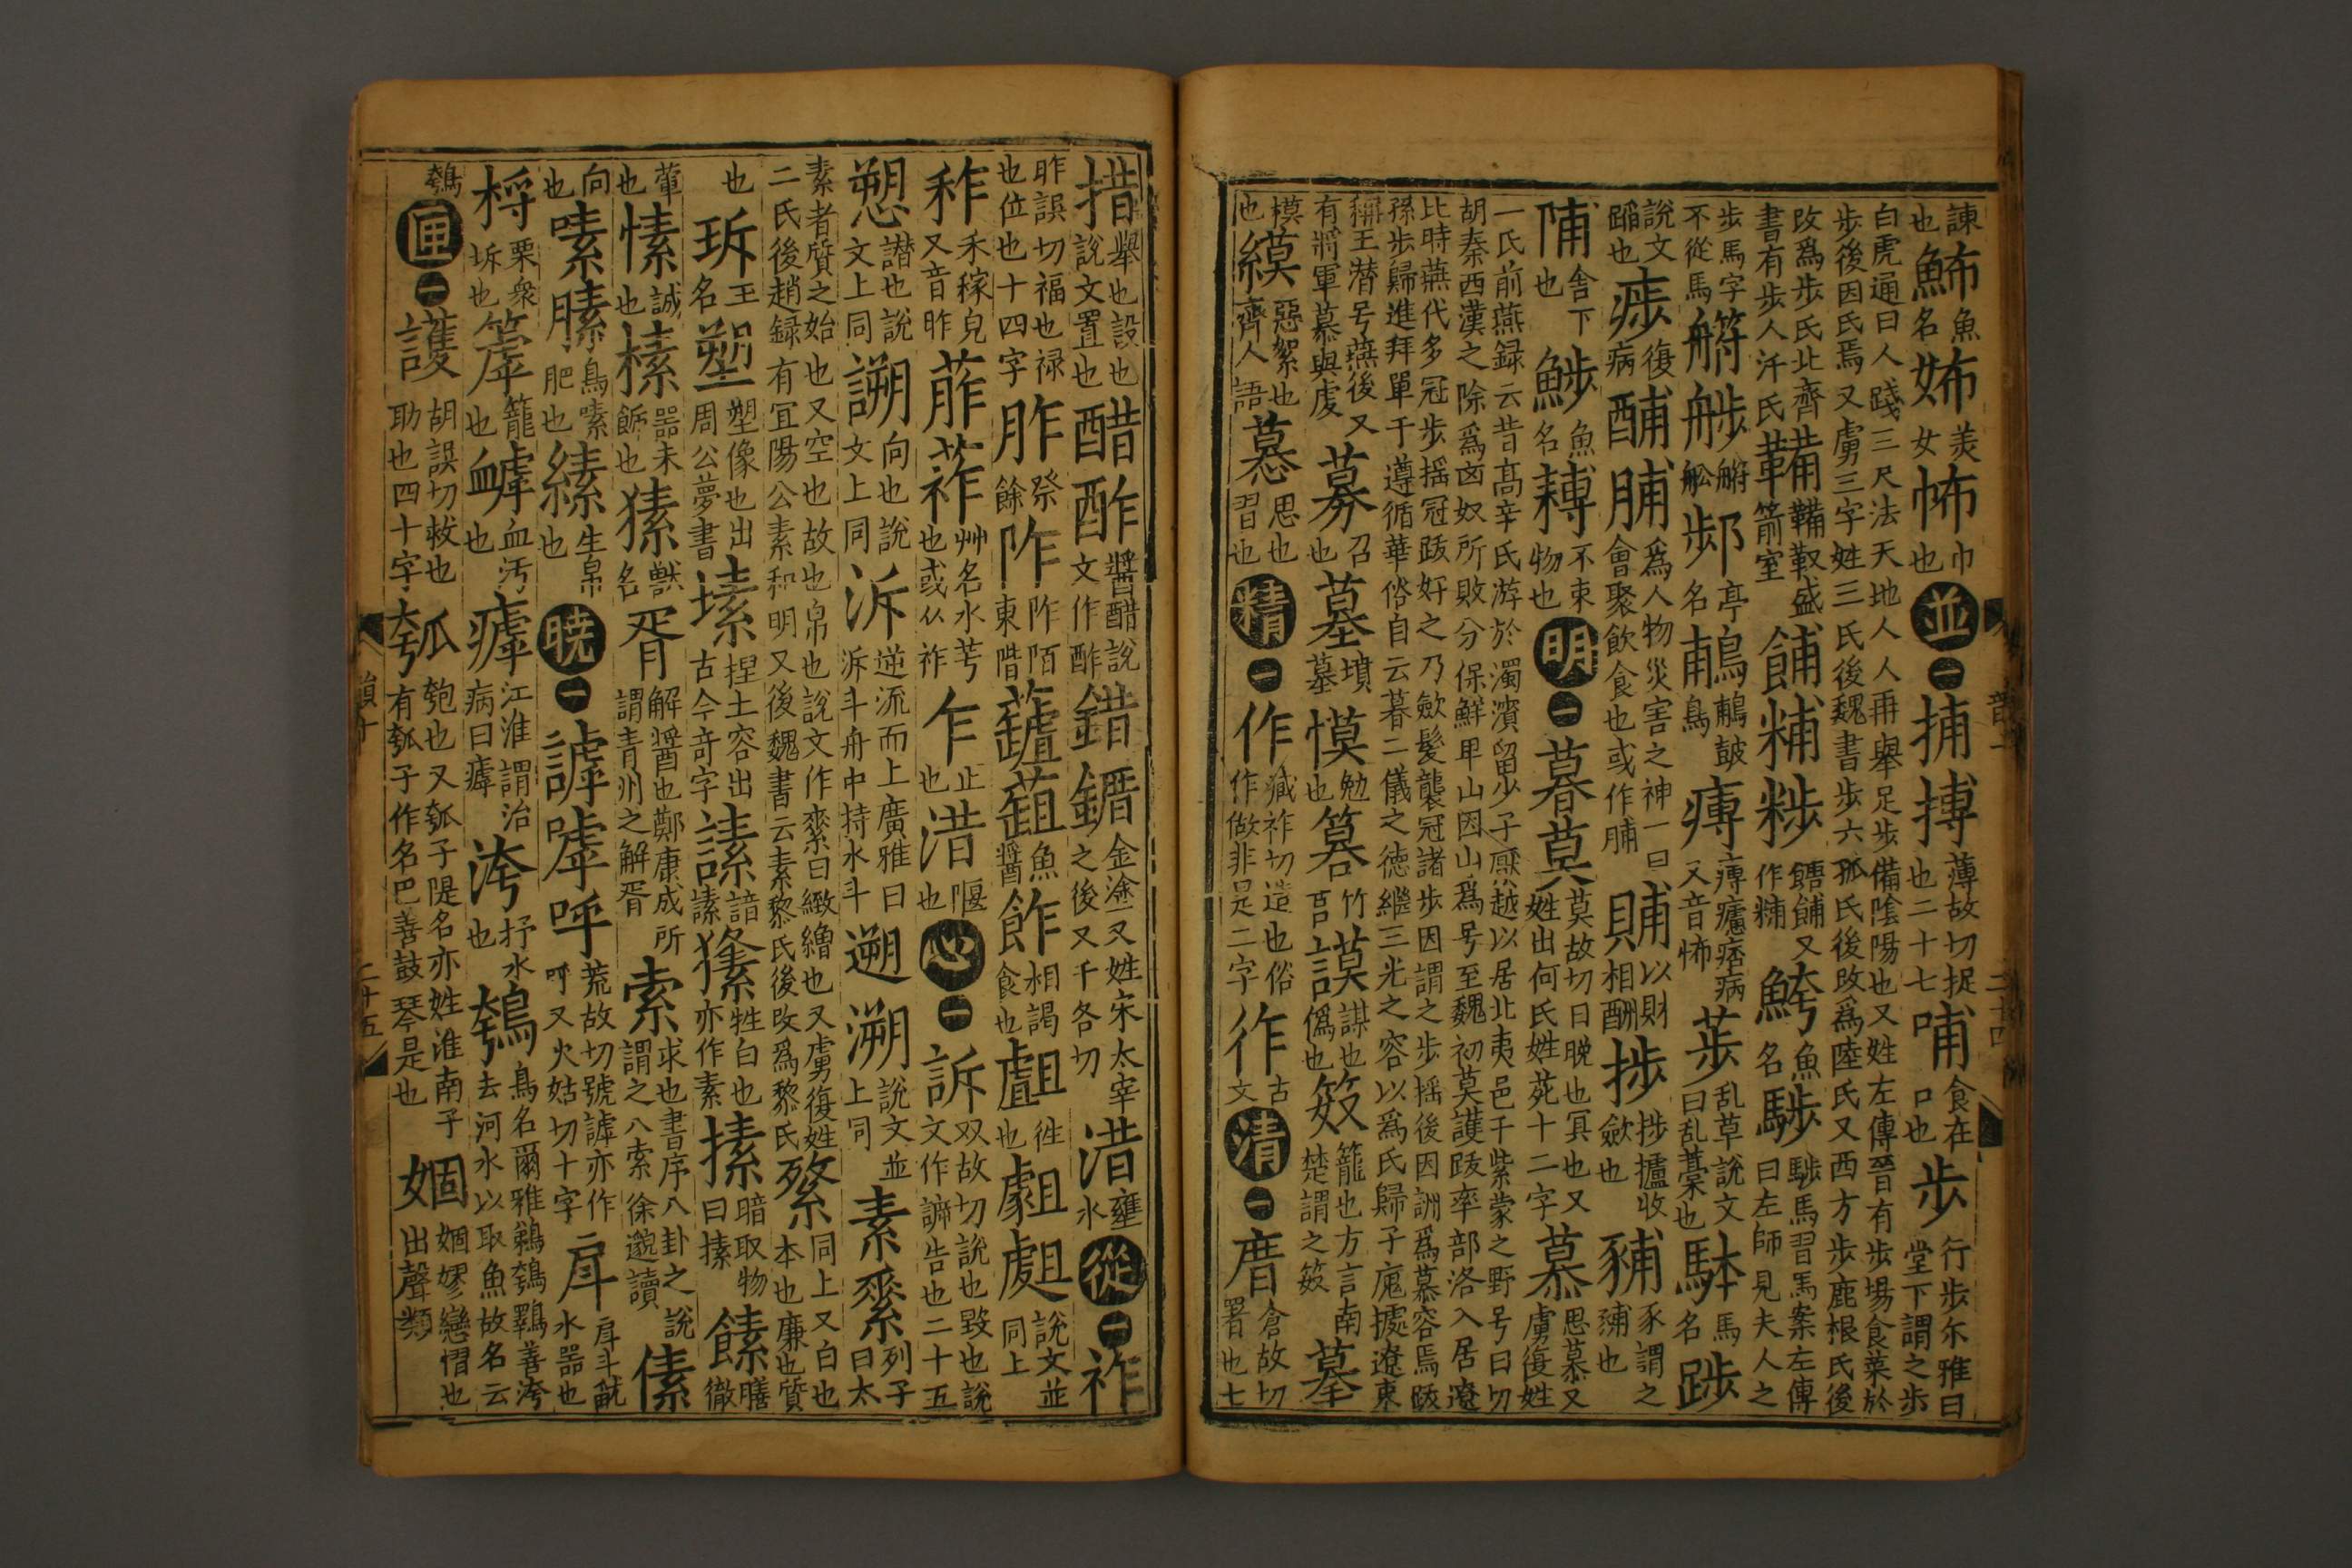 諫也鯆魚名姉女美怖巾也並一捕搏薄故切捉也二十七哺食在口也步行步尒雅曰堂下謂之步
白虎通曰人踐三尺法天地人人再舉足步備隂陽也又姓左傳晉有步場食菜於
步後因氏焉又虜三字姓三氏後魏書步六孤氏後攺爲陸氏又西方步鹿根氏後
攺爲步氏北齊書有步人汗氏鞴鞴靫盛箭室餔䊇䊇餹餔又作䊇䱛魚名䮛䮛馬習馬案左傳曰左師見夫人之
步馬字不從馬艊艊舩䣝亭名鵏鵏䳁鳥痡痡瘧痞病又音怖荹乱草說文曰乱藁也䮛馬名踄
說文蹈也㾟復病酺脯爲人物災害之神一曰會聚飲食也或作脯䝵以財相酬捗捗攎收斂也豧豕謂之豧也
陠舍下也䱛魚名𦔫不束物也明一暮莫莫故切日晚也冥也又姓出何氏姓苑十二字慕思慕又虜復姓
一氏前燕録云昔髙辛氏游於濁濱留少子厭越以居北夷邑于紫蒙之野号曰
胡秦西漢之除爲匈奴所敗分保鮮𤰞山因山爲号至魏初莫護跋率部洛入居遼
比時燕代多冠步摇冠跋好之乃歛髮襲冠諸步因謂之步摇後因訛爲慕容焉跋
孫步歸進拜單于遵循華俗自云暮二儀之德繼三光之容以爲氏歸子廆據遼東
稱王潜号燕後又有將軍慕輿虔募召也墓墳墓慔勉也䈿竹䈿謨謀也僞也笯籠也方言南楚謂之笯摹
模也縸惡絮也齊人語慕思也習也精一作臧祚切造也俗作做非是二字徃古文清一厝倉故切署也七
措舉也設也說文置也醋酢醬醋說文作酢錯鐕金塗又姓宋太宰之後又千各切浩壅水從一祚
昨誤切福也禄也位也十四字胙祭餘阼阼陌東階䕢䔃魚醬飵相謁食也虘徃也䖕䖒說文並同上
秨禾稼皃又音昨葄蒩艸名水芐也或从祚乍止也浩偃也心一訴双故切說也毀也說文作謕告也二十五
愬譖也說文上同謿向也說文上同泝逆流而上廣雅曰泝斗舟中持水斗遡溯說文並上同素𦃃列子曰太
素者質之始也又空也故也帛也說文作𦃃曰緻繒也又虜復姓
二氏後趙録有宜陽公素和明又後魏書云素黎氏後攺爲黎氏𦃃同上又白也本也廉也質
也㻊玉名塑塑像也出周公夢書塐捏土容出古今竒字謜諳謜𤠚牲白也亦作素搎暗取物曰搎餗膳徹
葷也愫誠也榡器未飾也𤠚獸名胥解醬也鄭康成所謂青州之解胥索求也書序八卦之說謂之八索徐邈讀傃
向也嗉膆鳥嗉肥也縤生帛也曉一謼嘑呼荒故切號謼亦作呼又火姑切十字戽戽斗䑕水噐也
桴栗衆坼也䉉籠也𧗕血汚也㾲江淮謂治病曰㾲洿抒水也鴮鳥名爾雅鵜鴮鸅善洿去河水以取魚故名云
鴮匣一護胡誤切救也助也四十字瓠瓠匏也又瓠子隄名亦姓淮南子有瓠子作名巴善鼓琴是也婟婟嫪戀㥽也出聲類